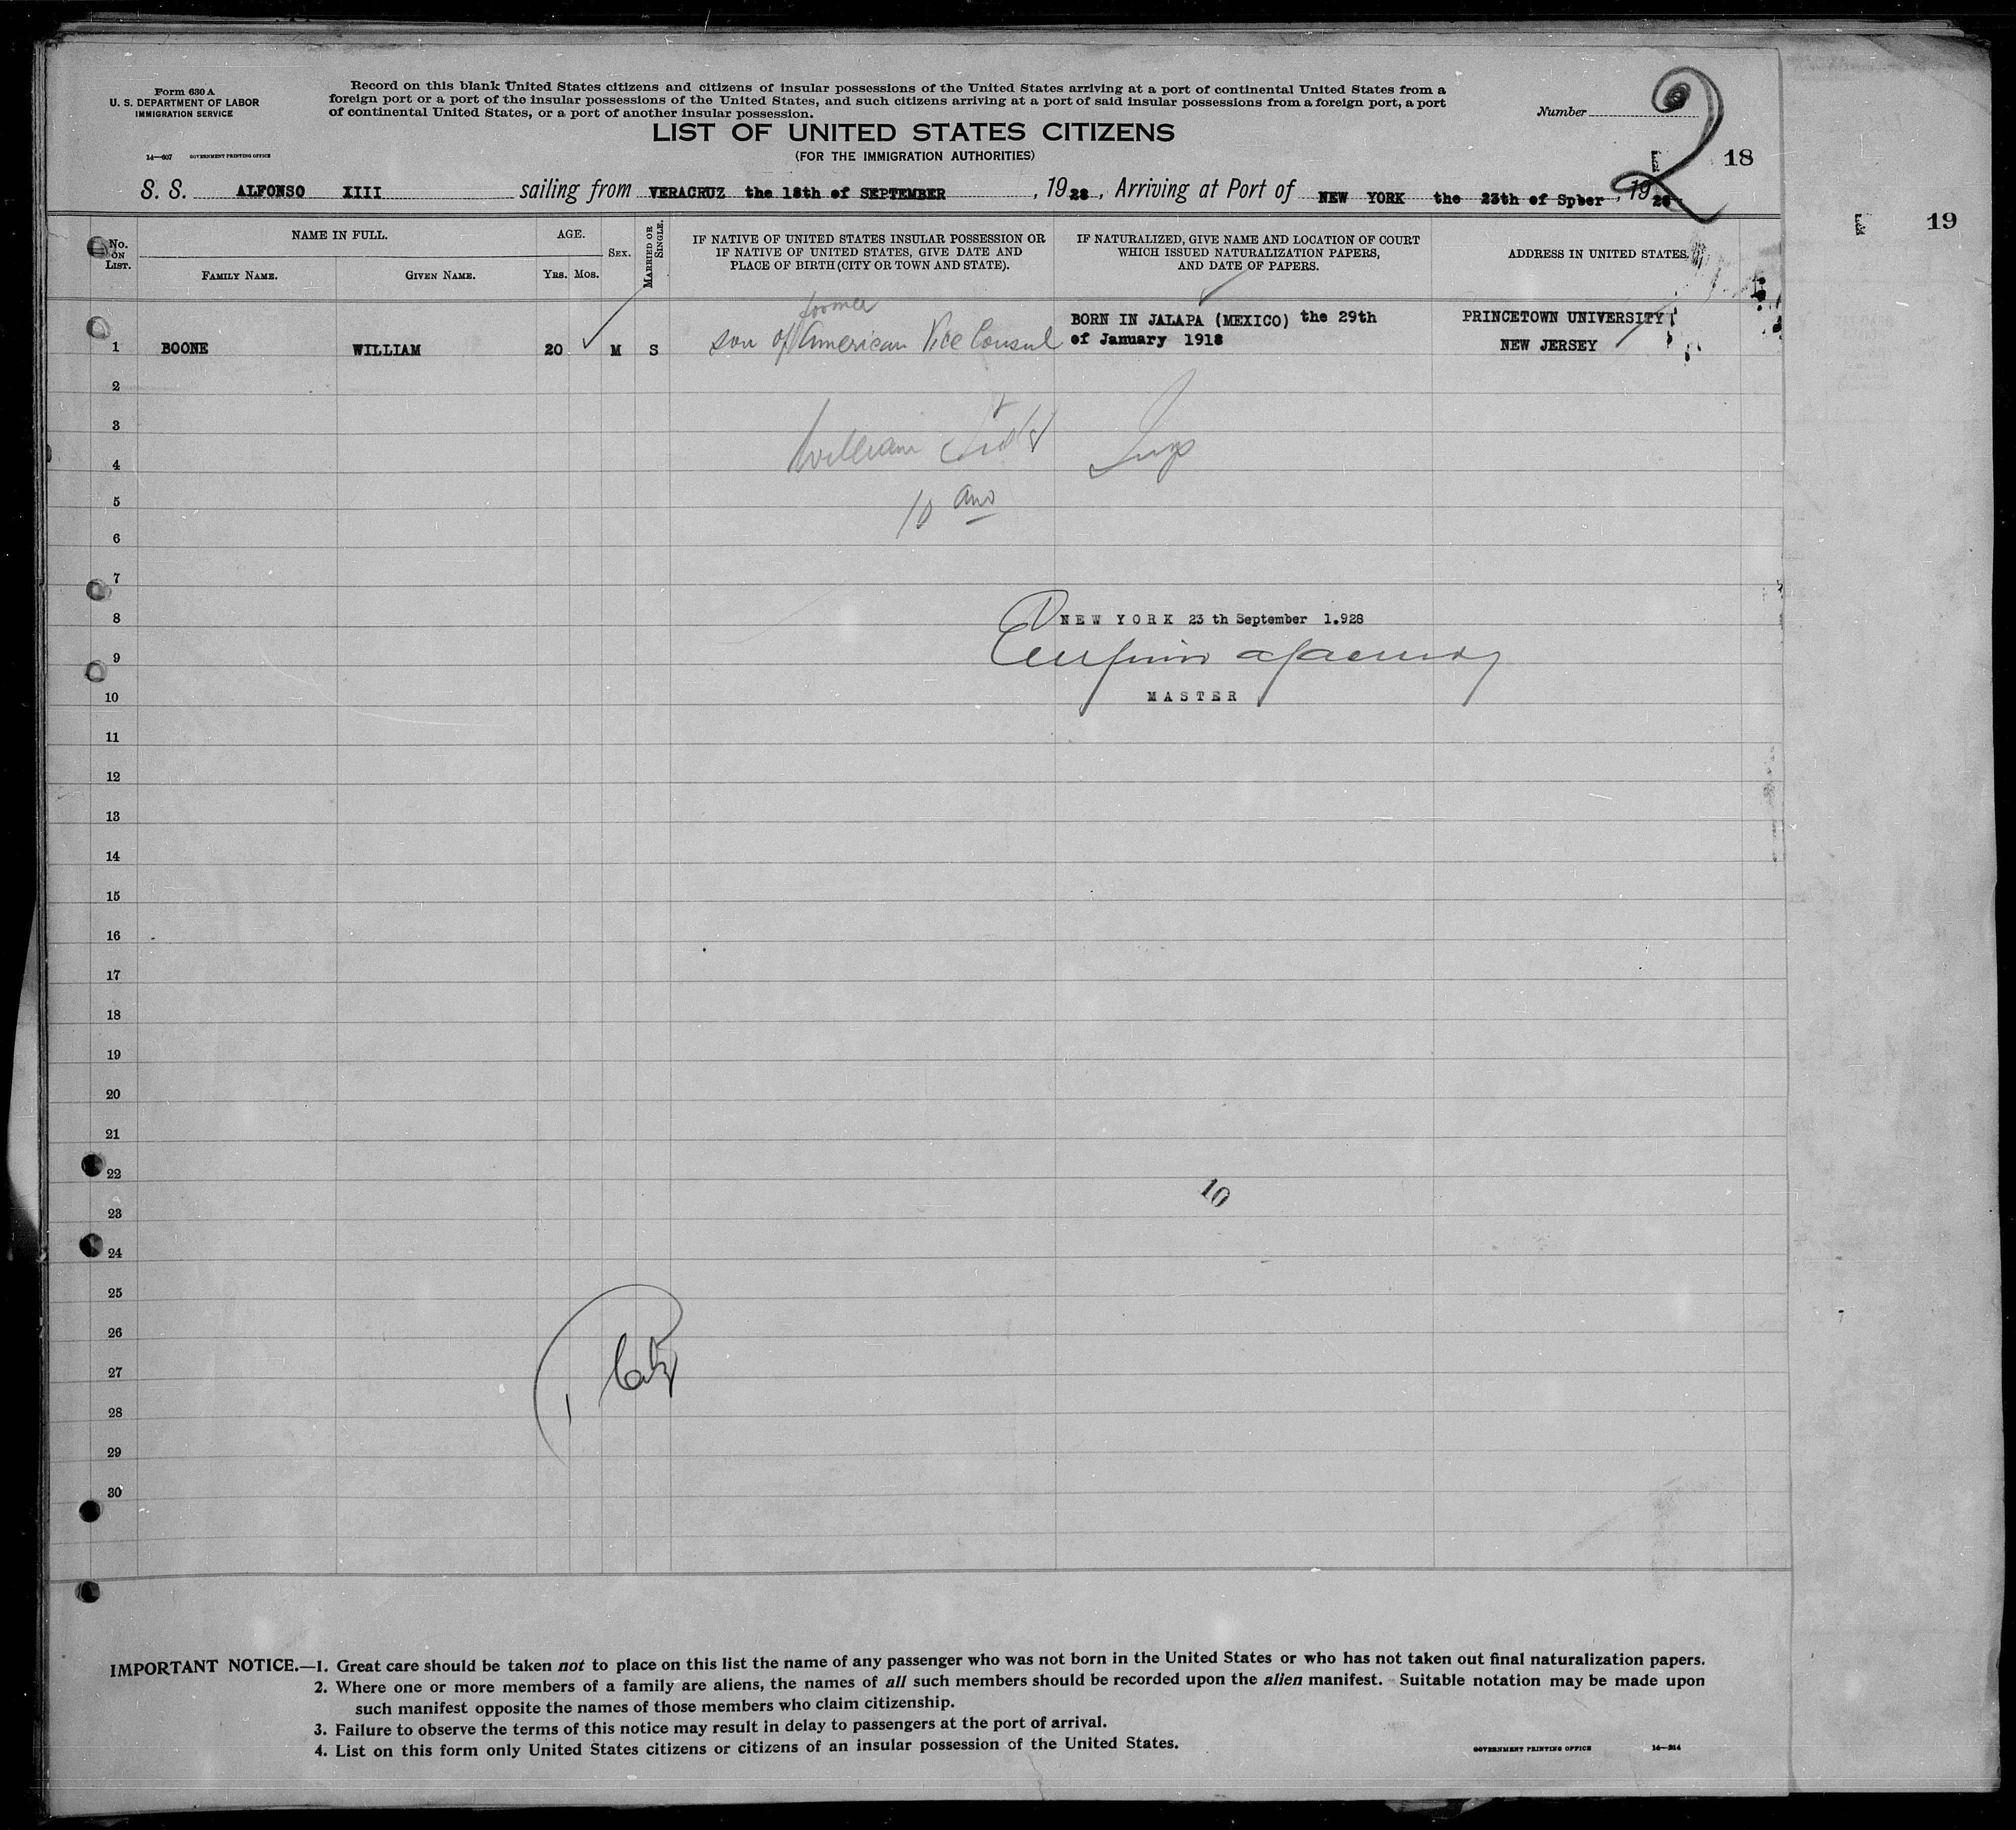 Form 630 A
U. S. DEPARTMENT OF LABOR
IMMIGRATION SERVICE
14—607 GOVERNMENT PRINTING OFFICE
Record on this blank United States citizens and citizens of insular possessions of the United States arriving at a port of continental United States from a
foreign port or a port of the insular possessions of the United States, and such citizens arriving at a port of said insular possessions from a foreign port, a port
of continental United States, or a port of another insular possession.
Number
2
LIST OF UNITED STATES CITIZENS
(FOR THE IMMIGRATION AUTHORITIES)
18
19
S. S. ALFONSO XIII sailing from VERACRUZ the 18th of SEPTEMBER, 1928, Arriving at Port of NEW YORK the 23th of Spber, 1928
No. ON LIST.
NAME IN FULL.
FAMILY NAME.
GIVEN NAME.
AGE.
YRS. MOS.
SEX.
MARRIED OR SINGLE.
IF NATIVE OF UNITED STATES INSULAR POSSESSION OR
IF NATIVE OF UNITED STATES, GIVE DATE AND
PLACE OF BIRTH (CITY OR TOWN AND STATE).
IF NATURALIZED, GIVE NAME AND LOCATION OF COURT
WHICH ISSUED NATURALIZATION PAPERS,
AND DATE OF PAPERS.
ADDRESS IN UNITED STATES.
former
1 BOONE WILLIAM 20 M S son of American Vice Consul
BORN IN JALAPA (MEXICO) the 29th
of January 1918
PRINCETOWN UNIVERSITY
NEW JERSEY
2
3
William
4
5
10
6
7
8
NEW YORK 23 th September 1.928
9
10
MASTER
11
12
13
14
15
16
17
18
19
20
21
22
10
23
24
25
26
27
28
29
30
IMPORTANT NOTICE.—1. Great care should be taken not to place on this list the name of any passenger who was not born in the United States or who has not taken out final naturalization papers.
2. Where one or more members of a family are aliens, the names of all such members should be recorded upon the alien manifest. Suitable notation may be made upon
such manifest opposite the names of those members who claim citizenship.
3. Failure to observe the terms of this notice may result in delay to passengers at the port of arrival.
4. List on this form only United States citizens or citizens of an insular possession of the United States.
GOVERNMENT PRINTING OFFICE 14—214